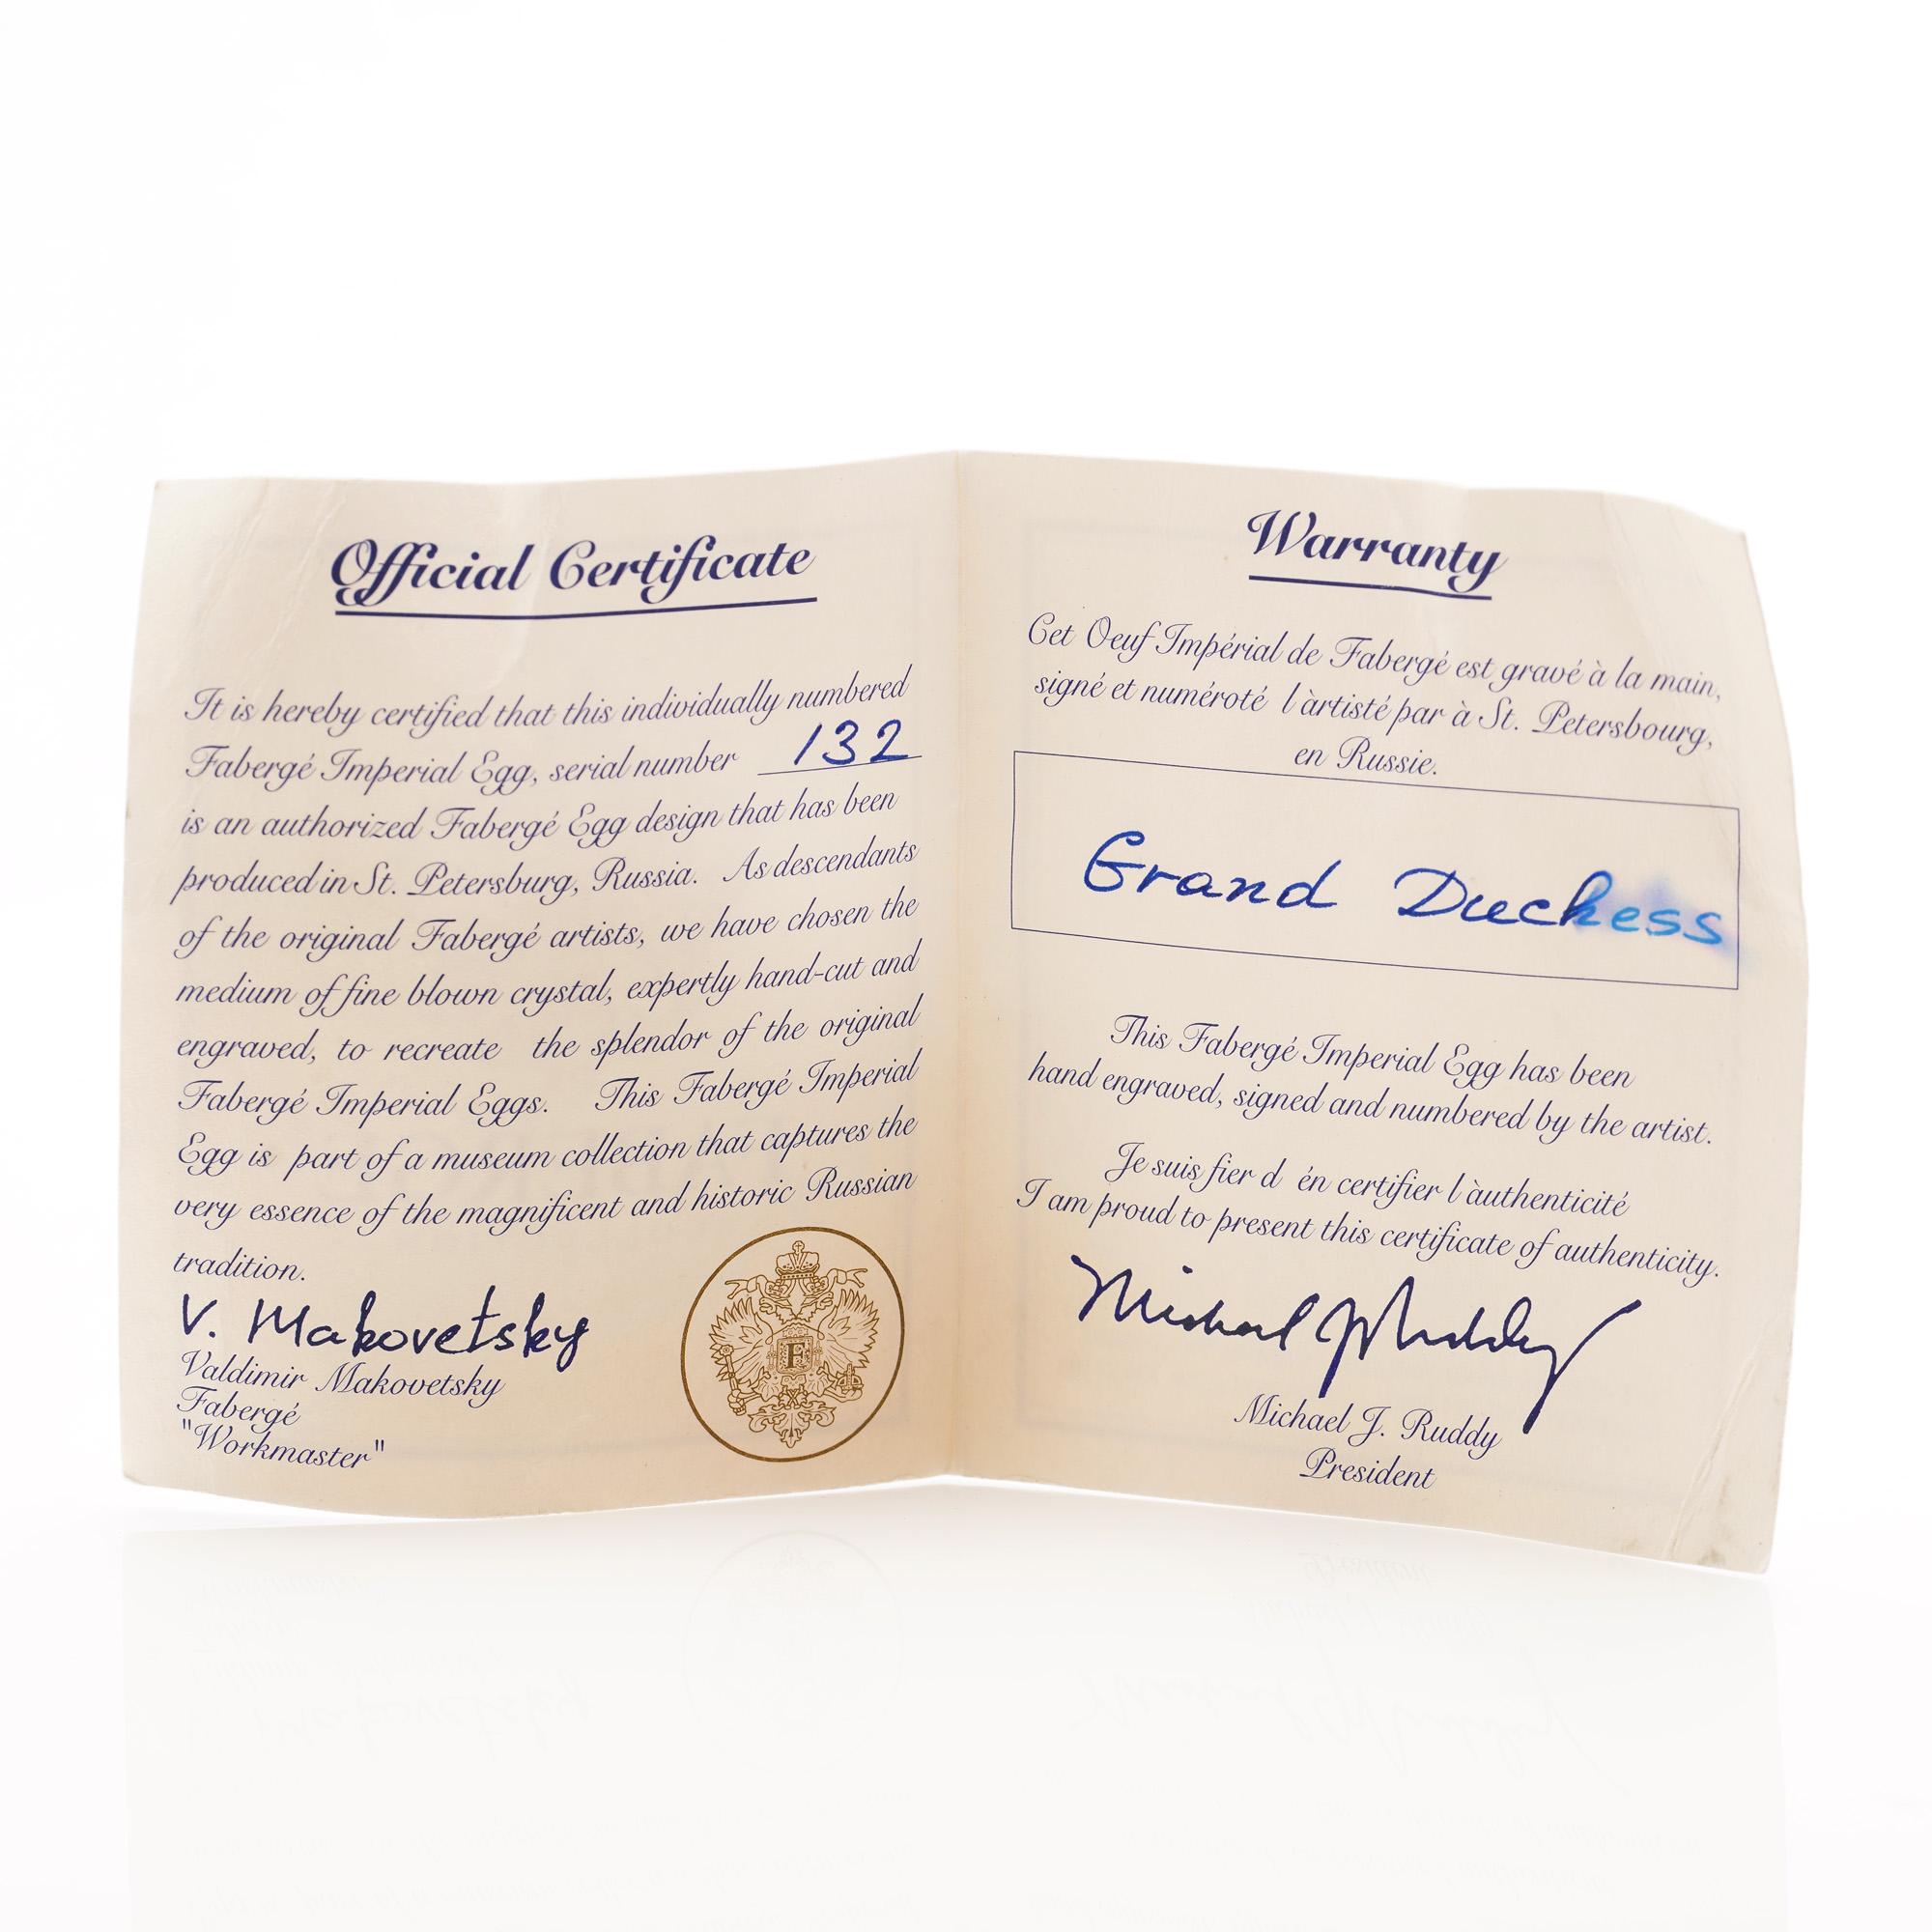 Official Certificate
It is hereby certified that this individually numbered
Fabergé Imperial Egg, serial number 132
is an authorized Fabergé Egg design that has been
produced in St. Petersburg, Russia. As descendants
of the original Fabergé artists, we have chosen the
medium of fine blown crystal, expertly hand-cut and
engraved, to recreate the splendor of the original
Fabergé Imperial Eggs. This Fabergé Imperial
Egg is part of a museum collection that captures the
very essence of the magnificent and historic Russian
tradition.
V. Makovetsky
Valdimir Makovetsky
Fabergé
"Workmaster"
F
Warranty
Cet Oeuf Impérial de Fabergé est gravé à la main,
signé et numéroté l'àrtisté par à St. Petersbourg,
en Russie.
Grand Duchess
This Fabergé Imperial Egg has been
hand engraved, signed and numbered by the artist.
Je suis fier d én certifier l'àuthenticité
I am proud to present this certificate of authenticity.
Michael J Ruddy
Michael J. Ruddy
President